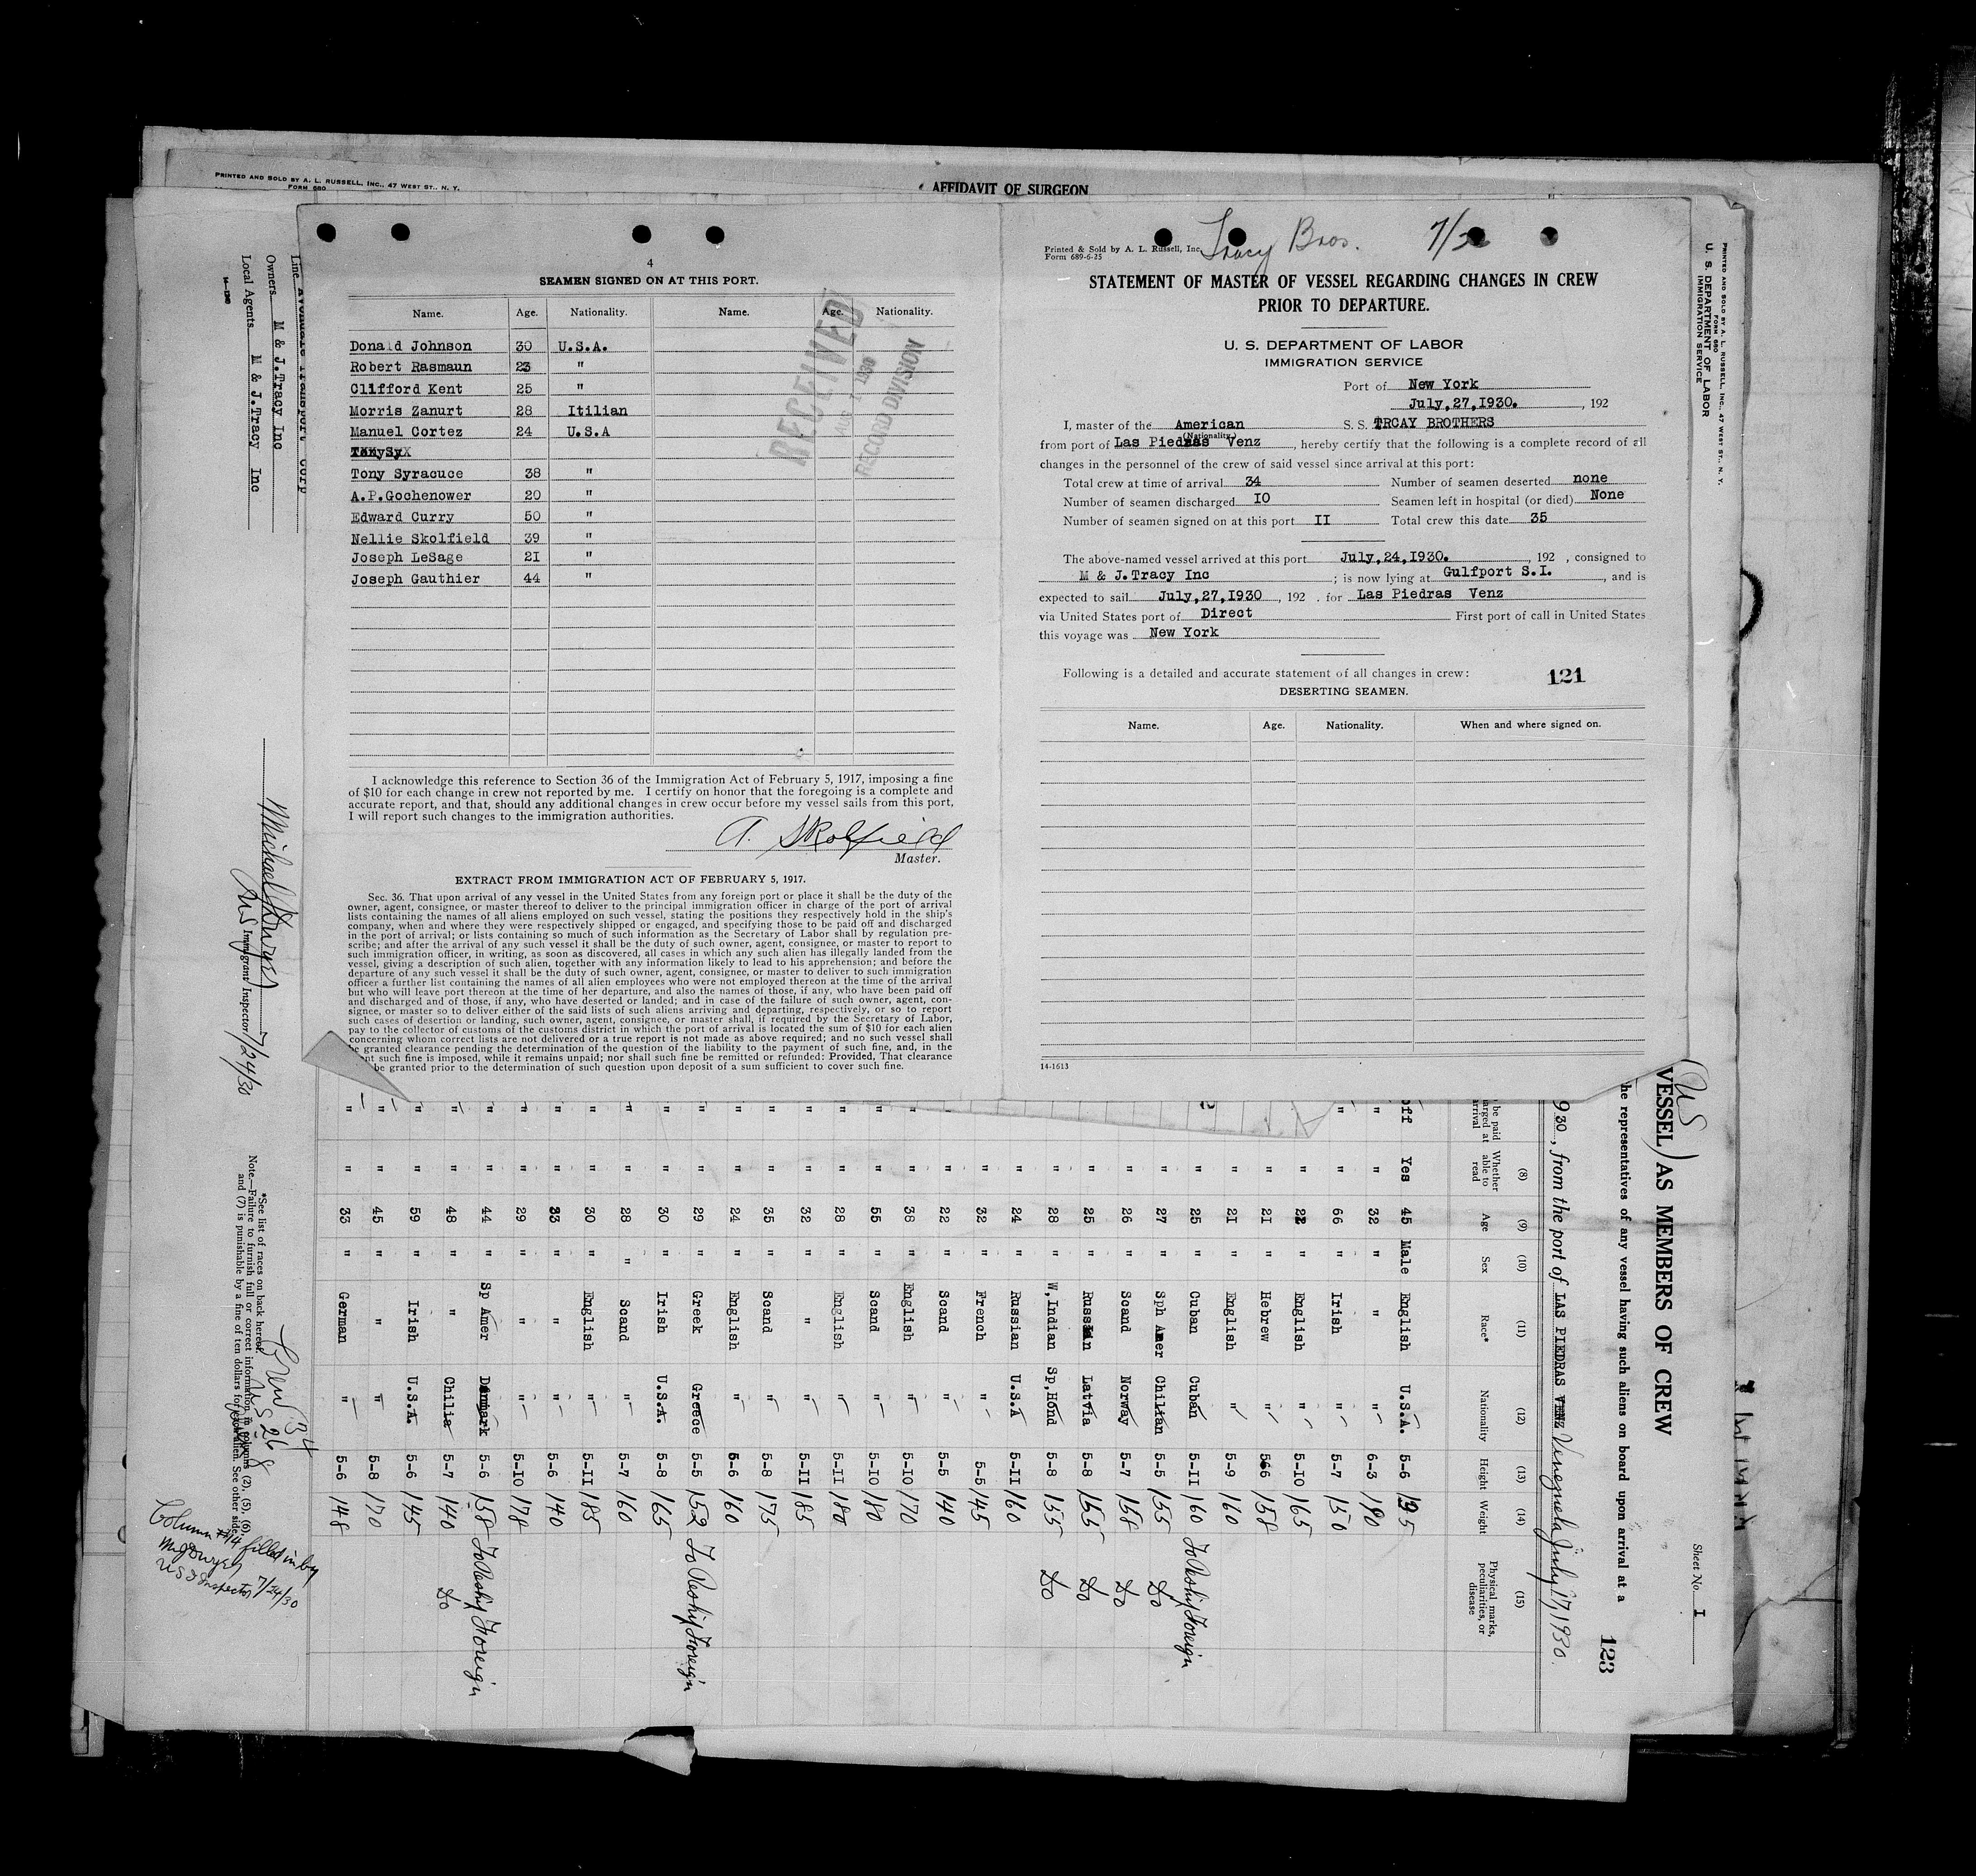 PRINTED AND SOLD BY A. L. RUSSELL, INC., 47 WEST ST., N. Y.
FORM 680
AFFIDAVIT OF SURGEON
4
SEAMEN SIGNED ON AT THIS PORT.
Name. Age. Nationality. Name. Age. Nationality.
Donald Johnson 30 U.S.A.
Robert Rasmaun 23 "
Clifford Kent 25 "
Morris Zanurt 28 Itilian
Manuel Cortez 24 U.S.A
Tony Syracuce 38 "
A.P.Gochenower 20 "
Edward Curry 50 "
Nellie Skolfield 39 "
Joseph LeSage 21 "
Joseph Gauthier 44 "
RECEIVED
AUG 1 1930
RECORD DIVISION
I acknowledge this reference to Section 36 of the Immigration Act of February 5, 1917, imposing a fine
of $10 for each change in crew not reported by me. I certify on honor that the foregoing is a complete and
accurate report, and that, should any additional changes in crew occur before my vessel sails from this port,
I will report such changes to the immigration authorities.
A. Skolfield
Master.
EXTRACT FROM IMMIGRATION ACT OF FEBRUARY 5, 1917.
Sec. 36. That upon arrival of any vessel in the United States from any foreign port or place it shall be the duty of the
owner, agent, consignee, or master thereof to deliver to the principal immigration officer in charge of the port of arrival
lists containing the names of all aliens employed on such vessel, stating the positions they respectively hold in the ship's
company, when and where they were respectively shipped or engaged, and specifying those to be paid off and discharged
in the port of arrival; or lists containing so much of such information as the Secretary of Labor shall by regulation pre-
scribe; and after the arrival of any such vessel it shall be the duty of such owner, agent, consignee, or master to report to
such immigration officer, in writing, as soon as discovered, all cases in which any such alien has illegally landed from the
vessel, giving a description of such alien, together with any information likely to lead to his apprehension; and before the
departure of any such vessel it shall be the duty of such owner, agent, consignee, or master to deliver to such immigration
officer a further list containing the names of all alien employees who were not employed thereon at the time of the arrival
but who will leave port thereon at the time of her departure, and also the names of those, if any, who have been paid off
and discharged and of those, if any, who have deserted or landed; and in case of the failure of such owner, agent, con-
signee, or master so to deliver either of the said lists of such aliens arriving and departing, respectively, or so to report
such cases of desertion or landing, such owner, agent, consignee, or master shall, if required by the Secretary of Labor,
pay to the collector of customs of the customs district in which the port of arrival is located the sum of $10 for each alien
concerning whom correct lists are not delivered or a true report is not made as above required; and no such vessel shall
be granted clearance pending the determination of the question of the liability to the payment of such fine, and, in the
such fine is imposed, while it remains unpaid; nor shall such fine be remitted or refunded: Provided, That clearance
be granted prior to the determination of such question upon deposit of a sum sufficient to cover such fine.
Tracy Bros. 7/
Printed & Sold by A. L. Russell, Inc.
Form 689-6-25
STATEMENT OF MASTER OF VESSEL REGARDING CHANGES IN CREW
PRIOR TO DEPARTURE.
U. S. DEPARTMENT OF LABOR
IMMIGRATION SERVICE
Port of New York
July,27,1930. , 192
I, master of the American S. S. TRCAY BROTHERS
(Nationality.)
from port of Las Piedras Venz , hereby certify that the following is a complete record of all
changes in the personnel of the crew of said vessel since arrival at this port:
Total crew at time of arrival 34 Number of seamen deserted none
Number of seamen discharged IO Seamen left in hospital (or died) None
Number of seamen signed on at this port II Total crew this date 35
The above-named vessel arrived at this port July,24,1930. , 192 , consigned to
M & J.Tracy Inc ; is now lying at Gulfport S.I. , and is
expected to sail July,27,1930 , 192 . for Las Piedras Venz
via United States port of Direct First port of call in United States
this voyage was New York
Following is a detailed and accurate statement of all changes in crew: 121
DESERTING SEAMEN.
Name. Age. Nationality. When and where signed on.
14-1613
PRINTED AND SOLD BY A. L. RUSSELL, INC., 47 WEST ST., N. Y.
FORM 680
U. S. DEPARTMENT OF LABOR
IMMIGRATION SERVICE
Sheet No. I
(US
VESSEL) AS MEMBERS OF CREW
the representatives of any vessel having such aliens on board upon arrival at a
123
30 , from the port of LAS PIEDRAS VENZ Venezuela July 17, 1930.
(8) (9) (10) (11) (12) (13) (14) (15)
Whether able to read Age Sex Race* Nationality Height Weight Physical marks, peculiarities, or disease
off Yes 45 Male English U.S.A. 5-6 195
" " 32 " " " 6-3 190
" " 66 " Irish " 5-7 150
" 22 " English " 5-10 165
" 21 " Hebrew " 566 158
" 21 " English " 5-9 160
" 25 " Cuban Cuban 5-11 160 To Reship Foreign
" 27 " Sph Amer Chilian 5-5 155 Do
" 26 " Scand Norway 5-7 158 Do
" 25 " Russian Latvia 5-8 165 Do
" 28 " W,Indian Sp,Hond 5-8 155 Do
" 24 " Russian U.S.A 5-11 160
" 32 " French " 5-5 145
" 22 " Scand " 5-5 140
" 38 " English " 5-10 170
" 55 " Scand " 5-10 180
" 28 " English " 5-11 180
" 32 " " " 5-11 185
" 35 " Scand " 5-8 175
" 24 " English " 5-6 160
" 29 " Greek Greece 5-5 152 To Reship Foreign
" 30 " Irish U.S.A. 5-8 165
" 28 " Scand " 5-7 160
" 30 " English " 5-11 185
" 33 " " " 5-6 140
" 29 " " " 5-10 178
" 44 " Sp Amer Denmark 5-6 158 To Reship Foreign
" 48 " " Chilia 5-7 140 Do
" 59 " Irish U.S.A. 5-6 145
" 45 " " " 5-8 170
" 33 " German " 5-6 148
Line Avondale Transport Corp
Owners M & J.Tracy Inc
Local Agents M & J.Tracy Inc
Michael Dwyer 7/24/30
US Immigrant Inspector
*See list of races on back hereof.
Note—Failure to furnish full or correct information in columns (2), (5), (6),
and (7) is punishable by a fine of ten dollars for each alien. See other side.
Crew 34
US 26
8
Column #14 filled in by
M J Dwyer
US Inspector 7/24/30